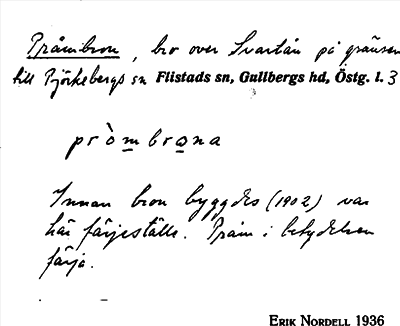 Pråmbron, bro över Svartån på gränsen
till Björkebergs sn Flistads sn, Gullbergs hd, Östg. l. 3
pròmbrona
Innan bron byggdes (1902) var
här färjeställe. Pråm i betydelsen
färja.
ERIK NORDELL 1936